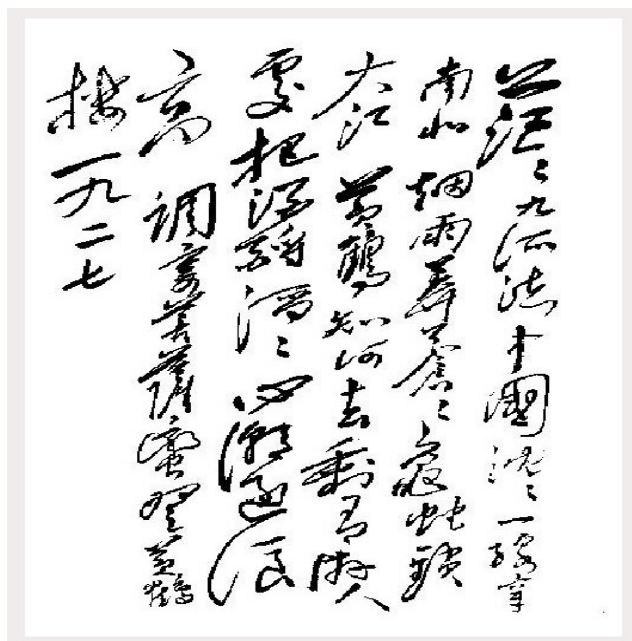 茫〻九派流中國沉〻一綫穿
南北 烟雨莽蒼〻龜蛇鎖
大江 黃鶴知何去剩有游人
處 把酒酹滔〻心潮逐浪
高 調寄菩薩蠻登黃鶴
樓 一九二七